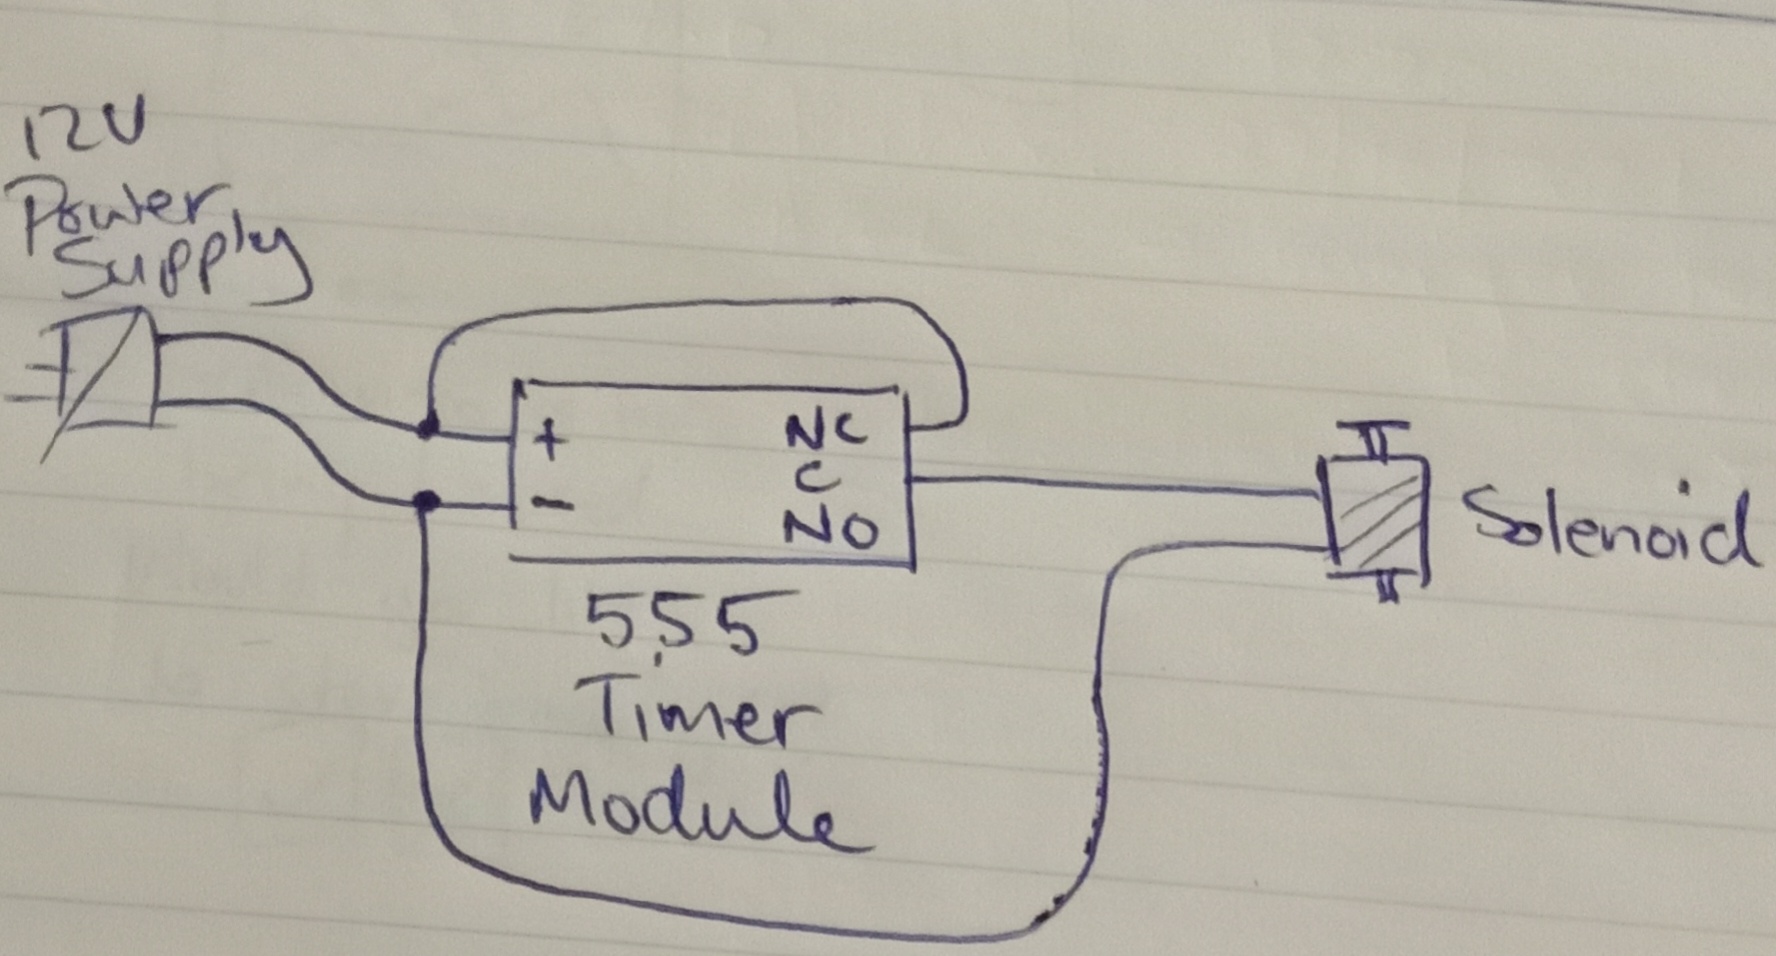 12V
Power
Supply
+
NC
C
-
NO
Solenoid
555
Timer
Module